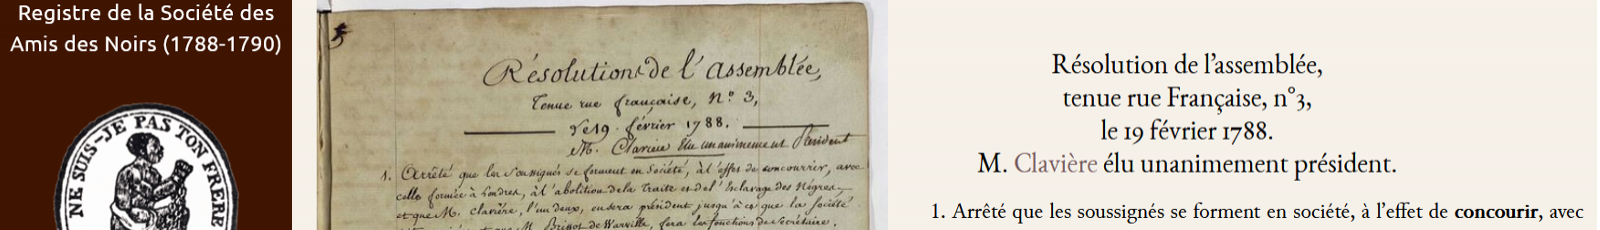 Registre de la Société des
Amis des Noirs (1788-1790)
NE SUIS-JE PAS TON FRERE
Résolution de l'assemblée,
Tenue rue française, N.° 3,
Le 19 février 1788.
M. Claviere élu unanimement Président
1. Arrêté que les soussignés se forment en Société, à l'effet de concourrir, avec
celle formée à Londres, à l'abolition de la Traite et de l'Esclavage des Nègres,
et que M. Clavière, l'un d'eux, en sera président jusqu'à ce que la Société
M. Brissot de Warville, fera les fonctions de Secrétaire.
Résolution de l'assemblée,
tenue rue Française, n°3,
le 19 février 1788.
M. Clavière élu unanimement président.
1. Arrêté que les soussignés se forment en société, à l'effet de concourir, avec